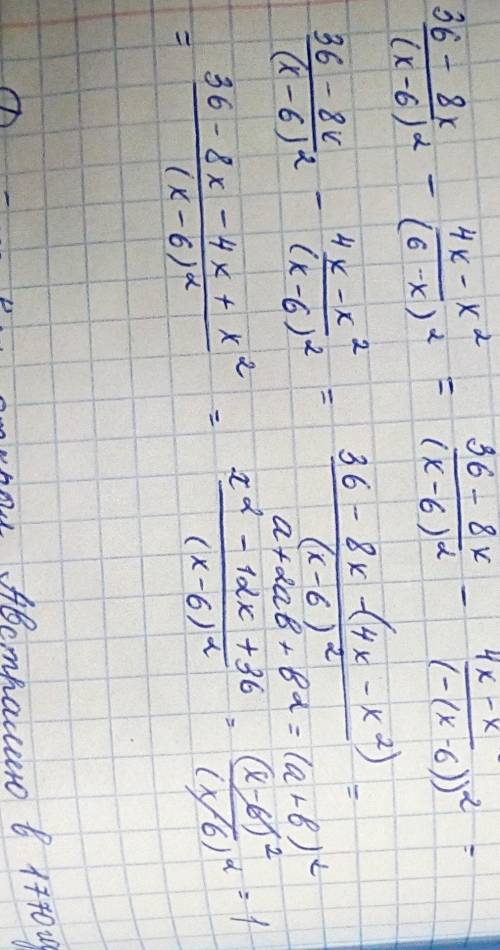 36 - 8x / (x-6)² - 4x - x² / (6-x)² = 36 - 8x / (x-6)² - 4x - x / (-(x-6))² =
36 - 8x / (x-6)² - 4x - x² / (x-6)² = 36 - 8x - (4x - x²) / (x-6)² =
a+2ab+b² = (a+b)²
= 36 - 8x - 4x + x² / (x-6)² = x² - 12x + 36 / (x-6)² = (x-6)² / (x-6)² = 1
Австралию в 1770